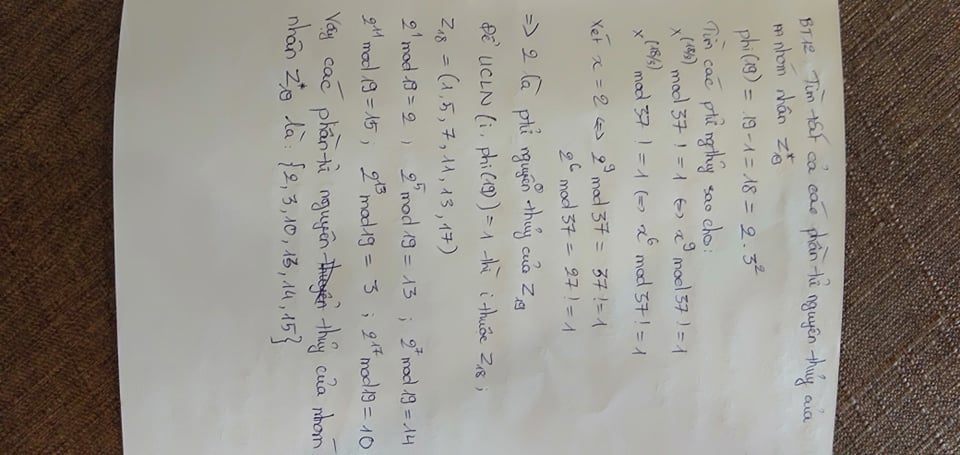 BT12. Tìm tất cả các phần tử nguyên thủy của
nhóm nhân Z*19
phi(19) = 19-1 = 18 = 2.3²
Tìm các ptử ngthủy sao cho:
x^(18/2) mod 37 != 1 <=> x^9 mod 37 != 1
x^(18/3) mod 37 != 1 <=> x^6 mod 37 != 1
Xét x = 2 <=> 2^9 mod 37 = 37 != 1
2^6 mod 37 = 27 != 1
=> 2 là ptử nguyên thủy của Z19
Để UCLN (i, phi(19)) = 1 thì i thuộc Z18;
Z18 = (1, 5, 7, 11, 13, 17)
2^1 mod 19 = 2 ; 2^5 mod 19 = 13 ; 2^7 mod 19 = 14
2^11 mod 19 = 15 ; 2^13 mod 19 = 3 ; 2^17 mod 19 = 10
Vậy các phần tử nguyên thủy của nhóm
nhân Z*19 là: {2, 3, 10, 13, 14, 15}